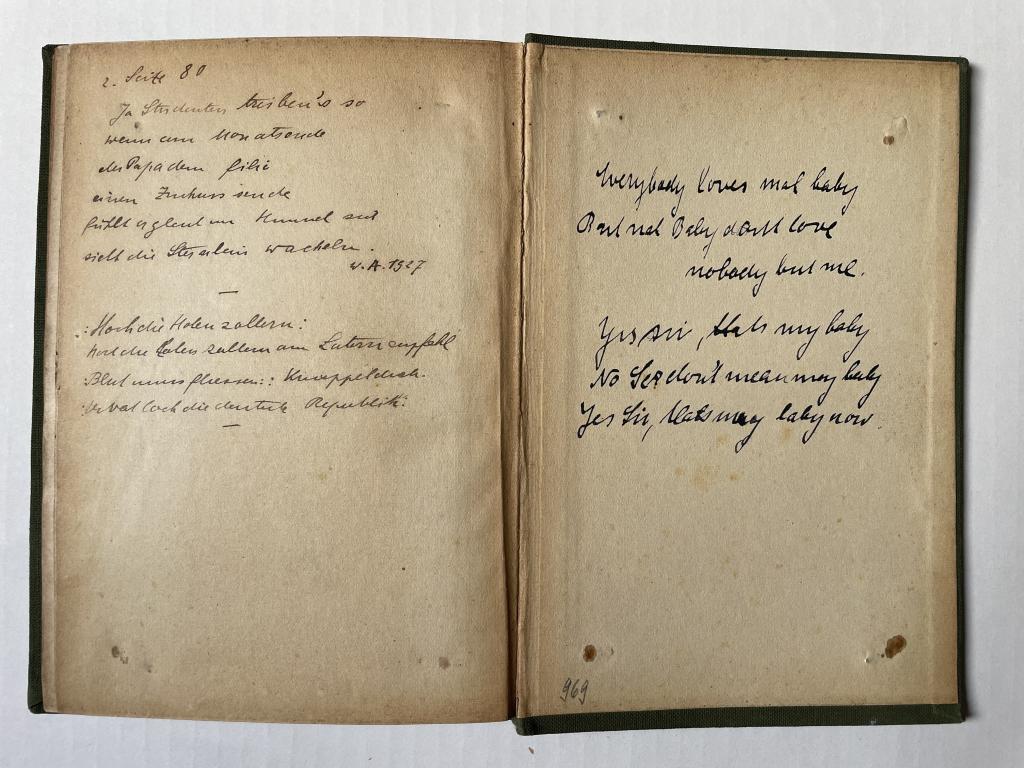 z. Seite 80
Ja Studenten treiben's so
wenn am Monatsende
der Papa dem filio
einen Zuschuss sende
fühlt er gleich im Himmel sich
sieht die Sternlein wackeln.
W.A. 1927
—
:Hoch die Hohenzollern:
hoch die Hohenzollern am Laternenpfahl
:Blut muss fliessen:: Knueppeldick.
die deutsche Republik:
—
Everybody loves mal baby
But mal Baby don't love
nobody but me.
Yes sir, thats my baby
No Ser don't mean may baby
Yes Sir, thats may baby now.
969